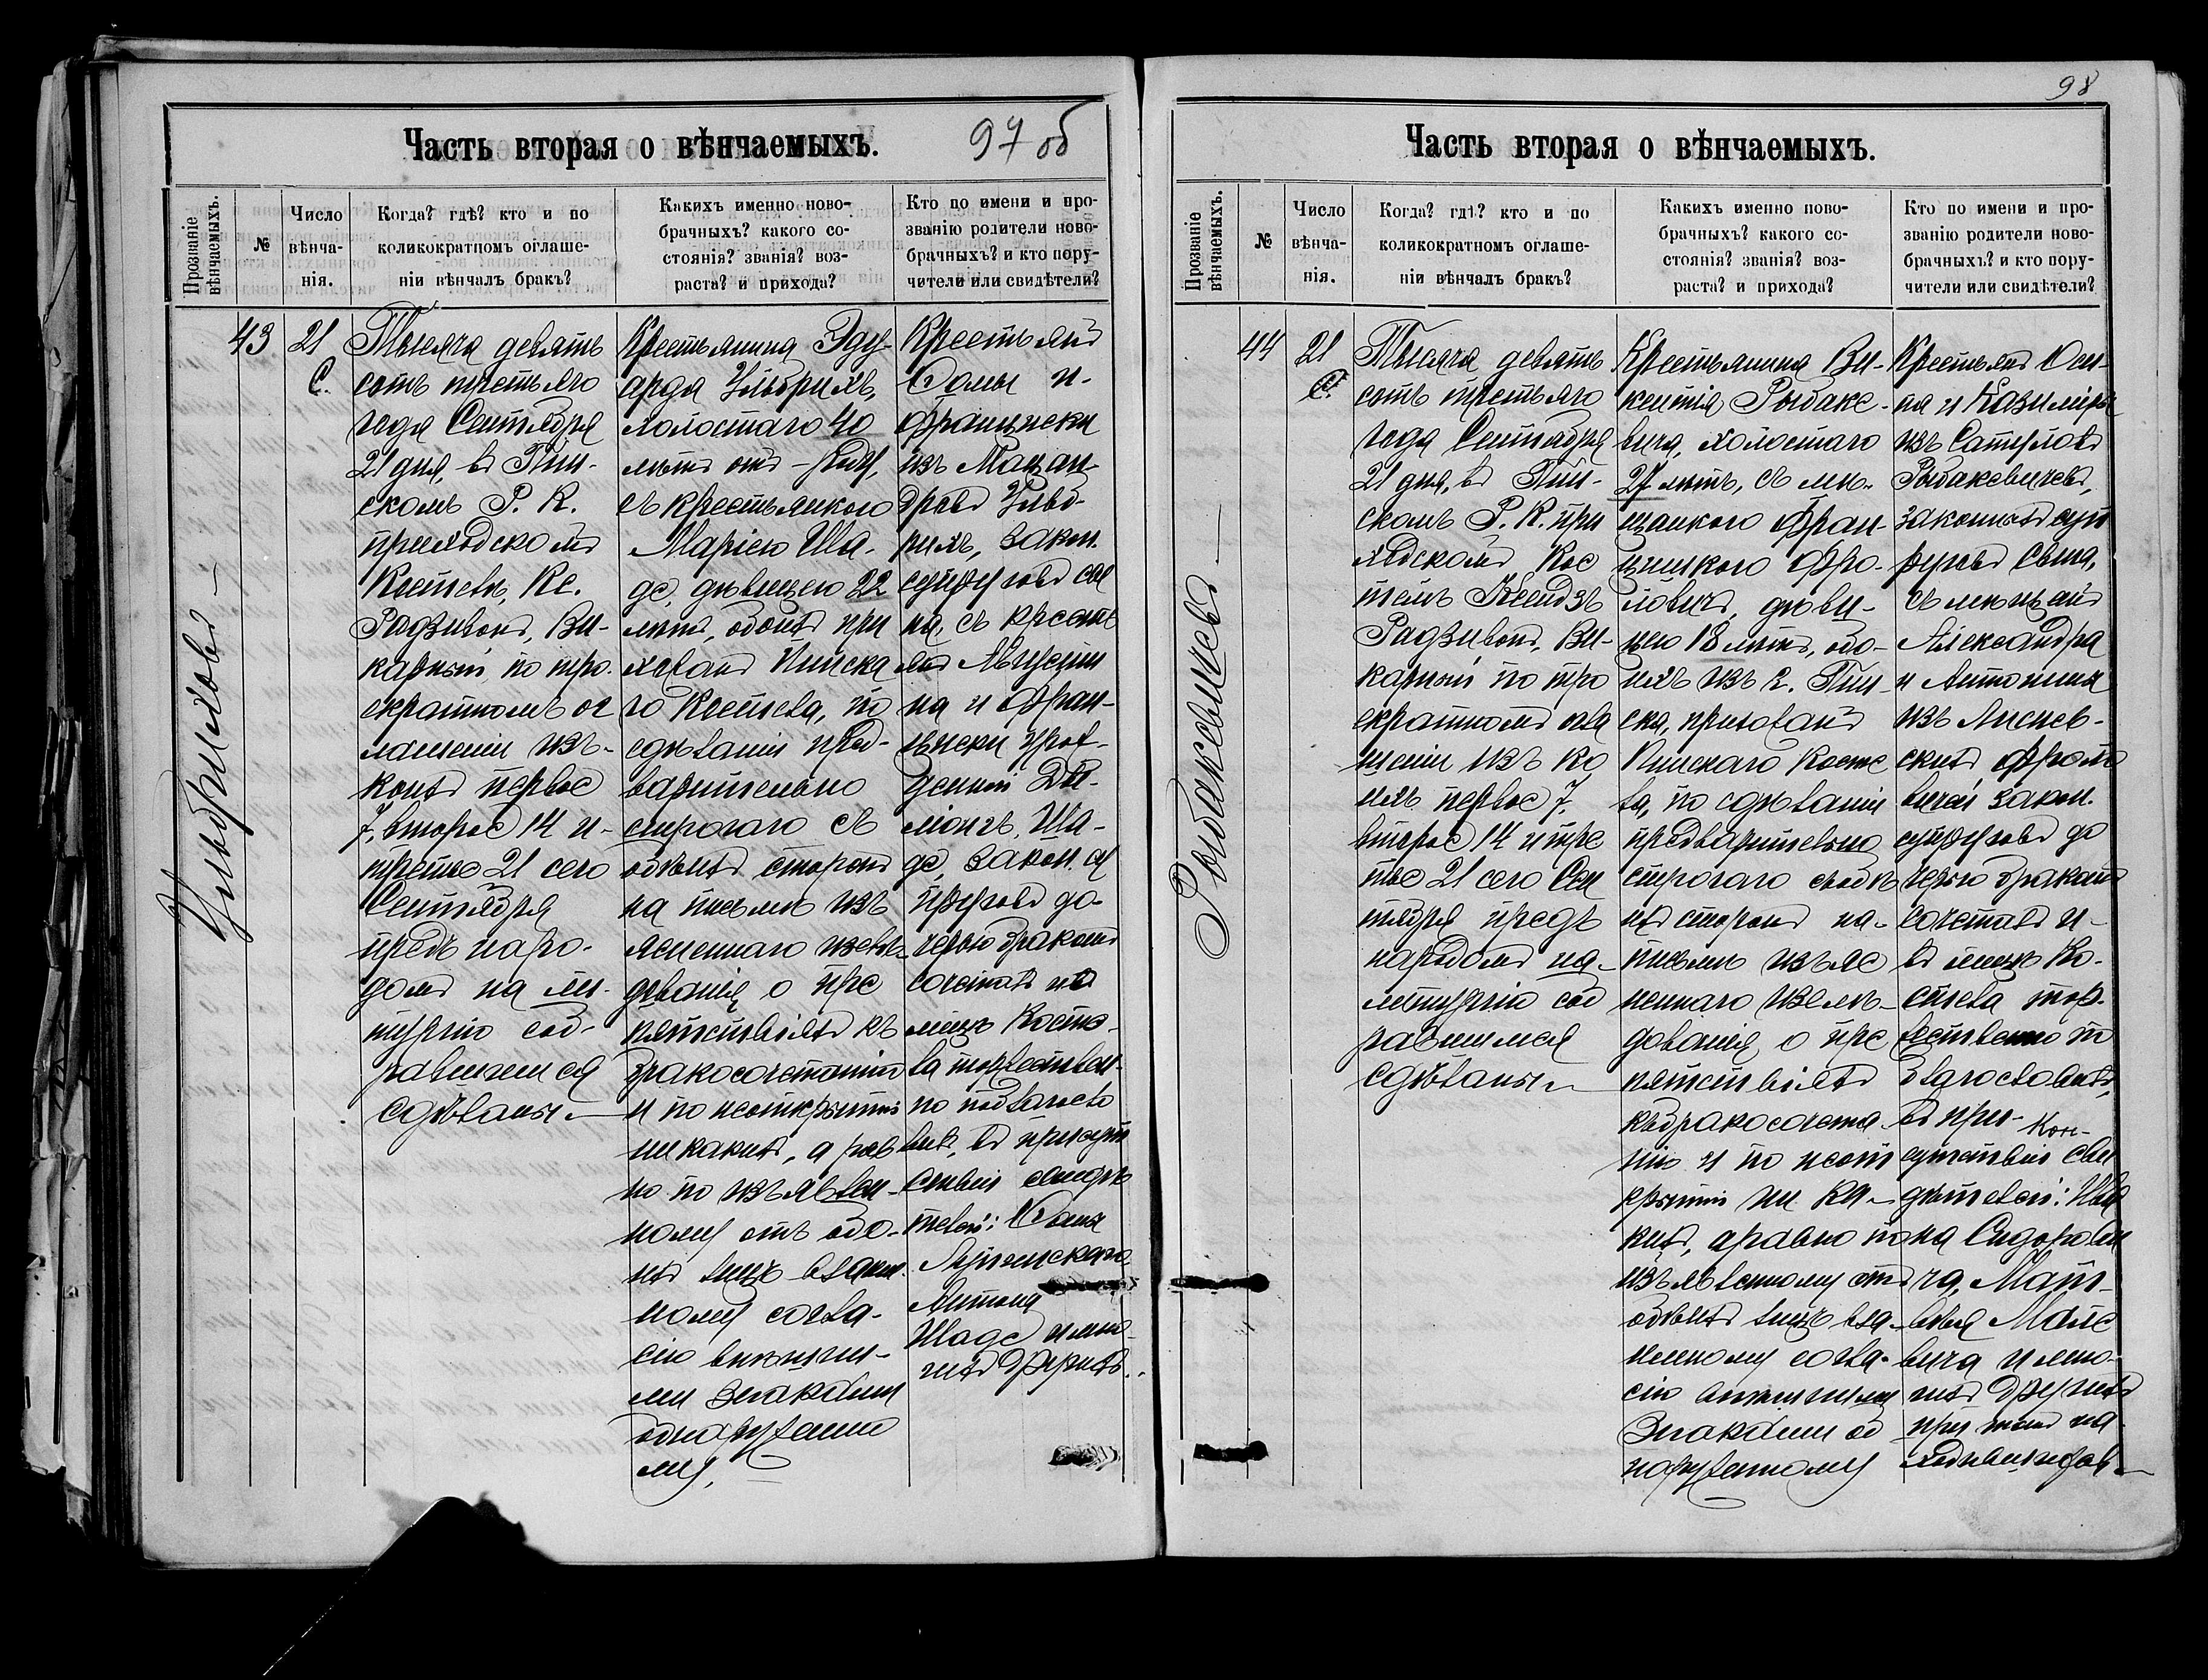 97 об
Часть вторая о вѣнчаемыхъ.
Прозваніе вѣнчаемыхъ.
№
Число вѣнча-
нія.
Когда? гдѣ? кто и по
коликократномъ оглаше-
ніи вѣнчалъ бракъ?
Какихъ именно ново-
брачныхъ? какого со-
стоянія? званія? воз-
раста? и прихода?
Кто по имени и про-
званію родители ново-
брачныхъ? и кто пору-
чители или свидѣтели?
Ульбриховъ
43
21
С.
Тысяча девять
сотъ третьяго
года Сентября
21 дня, въ Пин-
скомъ Р. К.
приходскомъ
Костелѣ, Кс.
Радзивонъ, Ви-
карный, по тро-
екратномъ ог
лашеніи изъ
коихъ первое
7, второе 14 и
третье 21 сего
Сентября
предъ наро-
домъ на ли-
тургію соб-
равшемся
сдѣланы
Крестьянина Эду-
арда Ульбрихъ,
холостаго 40
лѣтъ отъ роду,
съ крестьянкою
Маріею Ша-
де, дѣвицею 22
лѣтъ, обоихъ при
хожанъ Пинска
го Костела, по
сдѣланіи пред-
варительно
строгаго съ
обоихъ сторонъ
на письмѣ изъ
ясненнаго изслѣ-
дованія о пре
пятствіяхъ къ
бракосочетанію
и по неоткрытіи
никакихъ, а рав
но по изъявлен-
ному отъ обо-
ихъ лицъ взаим-
ному согла-
сію внѣшни-
ми знаками
обнаруженно
му,
Крестьянъ
Ѳомы и
Францишки
изъ
Ульб-
рихъ, закон.
супруговъ сы
на, съ крестья
нъ Августи
на и Фран-
цишки урож-
денной
Ша-
де, закон. су
пруговъ до-
черью бракомъ
сочеталъ и въ
лицѣ Косте-
ла торжествен-
но благосло
вилъ, въ присут
ствіи свидѣ
телей: Ѳомы
Антона
Шаде и мно-
гихъ другихъ.
98
Часть вторая о вѣнчаемыхъ.
Прозваніе вѣнчаемыхъ.
№
Число вѣнча-
нія.
Когда? гдѣ? кто и по
коликократномъ оглаше-
ніи вѣнчалъ бракъ?
Какихъ именно ново-
брачныхъ? какого со-
стоянія? званія? воз-
раста? и прихода?
Кто по имени и про-
званію родители ново-
брачныхъ? и кто пору-
чители или свидѣтели?
Рыбакевичевъ
44
21
С.
Тысяча девять
сотъ третьяго
года Сентября
21 дня, въ Пин-
скомъ Р. К. при
ходскомъ Кос
телѣ Ксендзъ
Радзивонъ, Ви-
карный по тро
екратномъ огла
шеніи изъ ко
ихъ первое 7,
второе 14 и тре
тье 21 сего Сен
тября предъ
народомъ на
литургію соб
равшимся
сдѣланы
Крестьянина Ви-
кентія Рыбаке-
вича, холостаго
27 лѣтъ, съ мѣ-
щанкою Фран-
цишкою Фро-
ловичъ, дѣви-
цею 18 лѣтъ, обо-
ихъ изъ г. Пин-
ска, прихожанъ
Пинскаго Косте
ла, по сдѣланіи
предварительно
строгаго съ обо
ихъ сторонъ на
письмѣ изъяс
неннаго изслѣ-
дованія о пре
пятствіяхъ
къ бракосочета
нію и по неот
крытіи ни ка-
кихъ, а равно по
изъявленному отъ
обоихъ лицъ вза-
имному согла-
сію внѣшними
знаками об
наруженному
Крестьянъ Оси-
па и Казиміры
изъ
Рыбакевичевъ,
законныхъ суп
руговъ сына,
съ мѣщанъ
Александра
и Антонины
изъ
Фроло
вичей закон.
супруговъ до
черью бракомъ
сочеталъ и
въ лицѣ Ко-
стела торж-
ественно
благословилъ,
въ при-
сутствіи сви
дѣтелей:
Сидорови
ча, Мат-
вича и мно-
гихъ другихъ
при томъ на
ходившихся